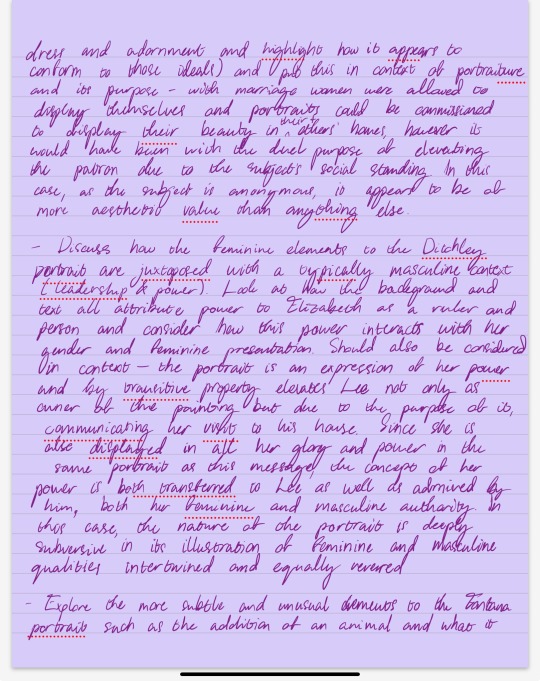 dress and adornment and highlight how it appears to
conform to those ideals) and put this in context of portraiture
and its purpose - with marriage women were allowed to
display themselves and portraits could be commissioned
to display their beauty in their others' homes, however it
would have been with the duel purpose of elevating
the patron due to the subject's social standing. In this
case, as the subject is anonymous, it appears to be of
more aesthetic value than anything else.
- Discuss how the feminine elements to the Ditchley
portrait are juxtaposed with a typically masculine context
(leadership & power). Look at how the background and
text all attribute power to Elizabeth as a ruler and
person and consider how this power interacts with her
gender and feminine presentation. Should also be considered
in context - the portrait is an expression of her power
and by transitive property elevates Lee not only as
owner of the painting but due to the purpose of it,
communicating her visit to his house. Since she is
also displayed in all her glory and power in the
same portrait as this message, the concept of her
power is both transferred to Lee as well as admired by
him, both her feminine and masculine authority. In
this case, the nature of the portrait is deeply
subversive in its illustration of feminine and masculine
qualities intertwined and equally revered
- Explore the more subtle and unusual elements to the Fontana
portrait such as the addition of an animal and what it